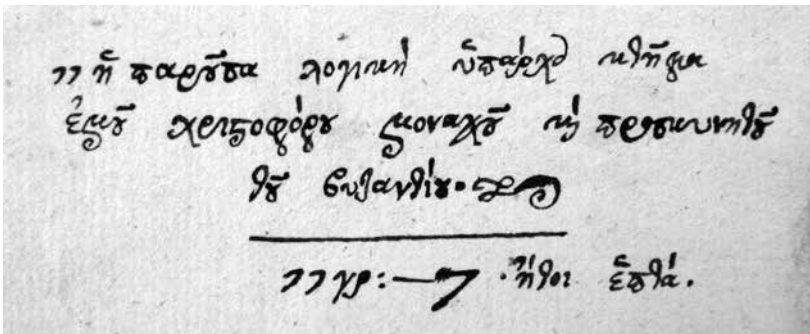 ״ ἡ παροῦσα λογικὴ ὑπάρχει κτῆμα
ἐμοῦ χριστοφόρου μοναχοῦ καὶ προσκυνητοῦ
τοῦ βυζαντίου.
״ γρ: — 7 · ἤτοι ἑπτά.